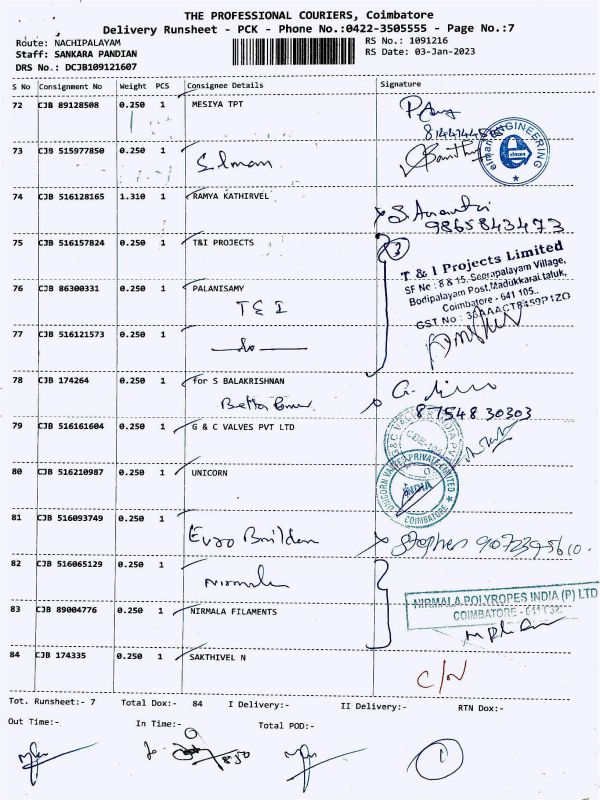 THE PROFESSIONAL COURIERS, Coimbatore
Delivery Runsheet - PCK - Phone No.:0422-3505555 - Page No.:7
Route: NACHIPALAYAM
RS No.: 1091216
Staff: SANKARA PANDIAN
RS Date: 03-Jan-2023
DRS No.: DCJB109121607
S No Consignment No Weight PCS Consignee Details Signature
72 CJB 89128508 0.250 1 MESIYA TPT
73 CJB 515977850 0.250 1 Elman
elman ENGINEERING
elman
74 CJB 516128165 1.310 1 RAMYA KATHIRVEL
9865843473
75 CJB 516157824 0.250 1 T&I PROJECTS
3
T & I Projects Limited
SF No : 8 & 15, Seerapalayam Village,
Bodipalayam Post, Madukkarai taluk,
Coimbatore - 641 105.
76 CJB 86300331 0.250 1 PALANISAMY
T & I
77 CJB 516121573 0.250 1 do
78 CJB 174264 0.250 1 for S BALAKRISHNAN
87548 30303
79 CJB 516161604 0.250 1 G & C VALVES PVT LTD
80 CJB 516210987 0.250 1 UNICORN
UNICORN VALVES PRIVATE LIMITED
INDIA
COIMBATORE
81 CJB 516093749 0.250 1 Euro Builden
Stephen
82 CJB 516065129 0.250 1 Nirmala
NIRMALA POLYROPES INDIA (P) LTD
COIMBATORE - 641 032
83 CJB 89004776 0.250 1 NIRMALA FILAMENTS
84 CJB 174335 0.250 1 SAKTHIVEL N
C/N
Tot. Runsheet:- 7 Total Dox:- 84 I Delivery:- II Delivery:- RTN Dox:-
Out Time:- In Time:- Total POD:-
8.50
1